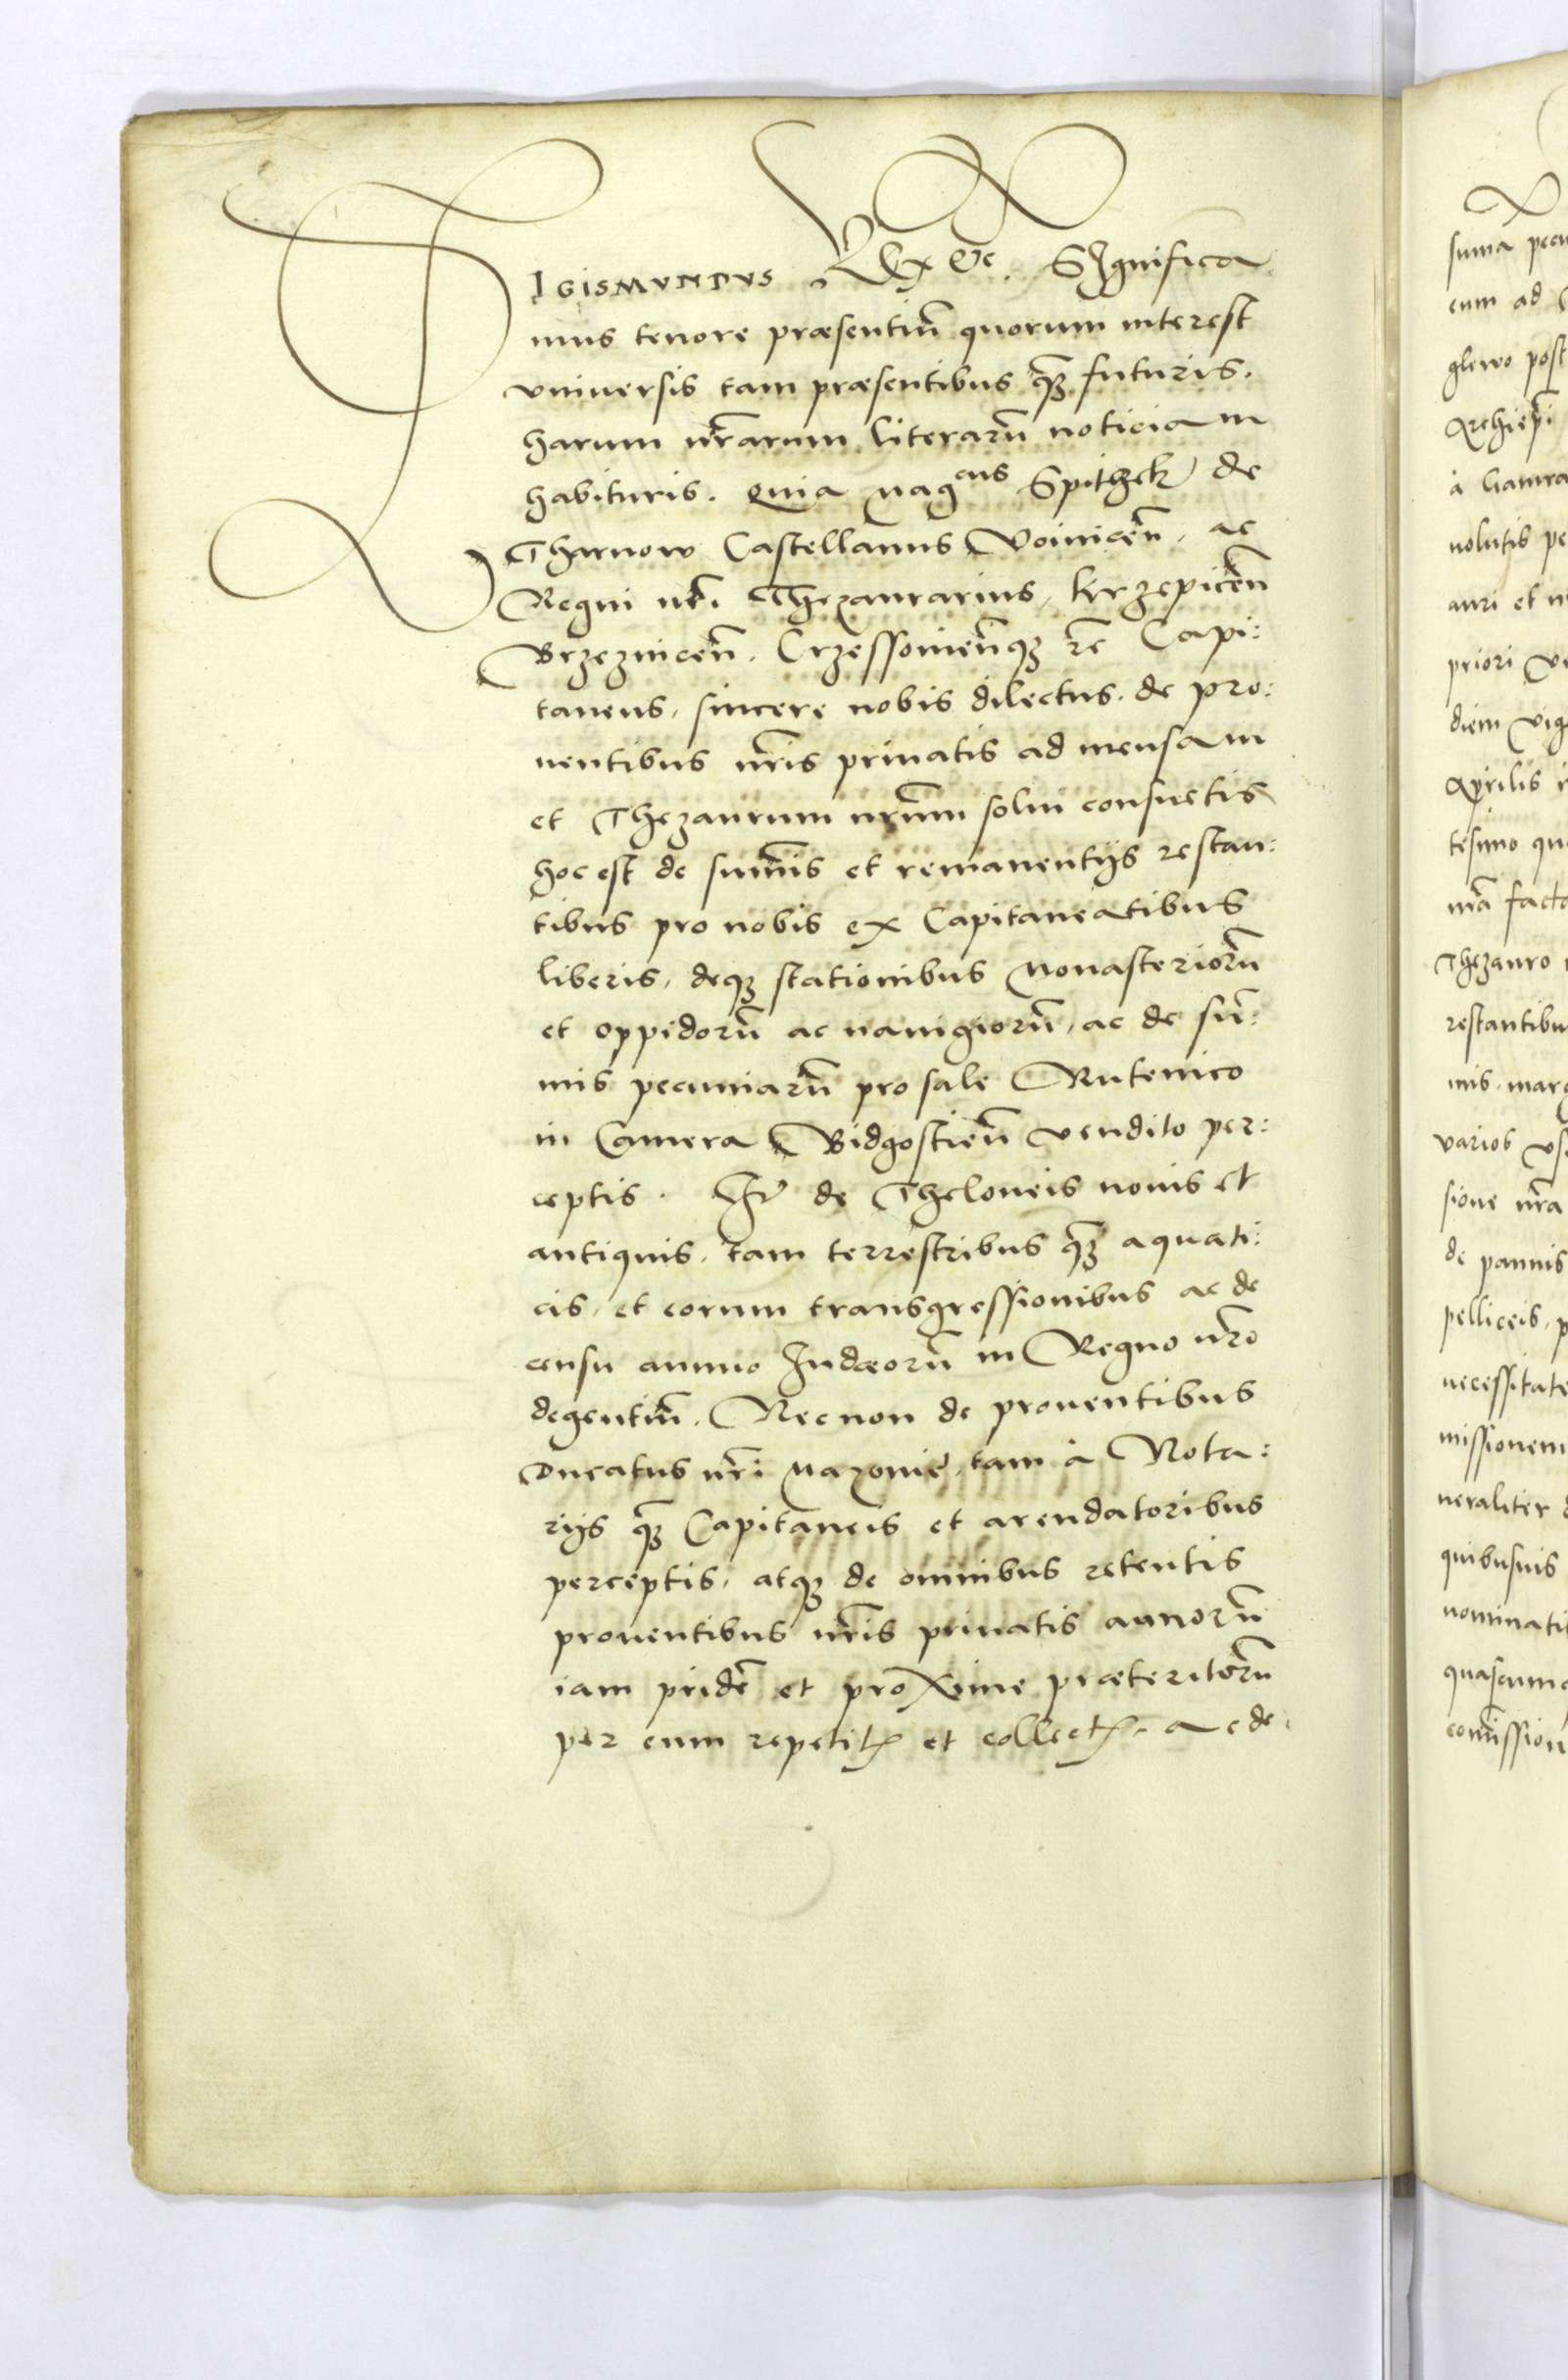 SIGISMVNDVS REx &c. SIgnifica
mus tenore præsentiū quorum interest
vniuersis tam præsentibus q̃ȝ futuris.
harum nr̃arum literarū noticiam
habituris. Quia Mag^cus Spithek de
Tharnow Castellanus Voinicen̄, ac
Regni nr̃i Thezaurarius, krzepicen̄
Brzeznicen̄. Crzessouien̄qȝ r̄c Capi:
taneus, sincere nobis dilectus. de pro:
uentibus nr̃is priuatis ad mensam
et Thezaurum nr̃um solui consuetis
hoc est de sum̄is et remanentijs restan:
tibus pro nobis ex Capitaneatibus
liberis, deqȝ stationibus Monasteriorū
et oppidorū ac nauigiorū, ac de sum̄:
mis pecuniarū pro sale Rutenico
in Camera Bidgostien̄ vendito per:
ceptis. It̃ de Theloneis nouis et
antiquis, tam terrestribus q̃ȝ aquati:
cis, et eorum transgressionibus ac de
censu annuo Iudæorū in Regno nr̃o
degentiū. Necnon de prouentibus
Ducatus nr̃i Mazouiȩ, tam à Nota:
rijs q̃ȝ Capitaneis et arendatoribus
perceptis, atqȝ de omnibus retentis
prouentibus nr̃is priuatis annorū
iam pridē et proxime præteritorū
per eum repetitꝭ et collectꝭ, ac de
suma pecu
cum ad
glewo post
Archiepĩ
à Gamra
uolutis pe
auri et
priori
diem vig
Aprilis
tesimo qu
nr̃a facta
Thezauro
restantibu
mis. marc
varios vs
sione nr̃a
de pannis
pelliceis, p
necessitate
missionem
neraliter
quibusuis
nominati
quascunq
com̄ission